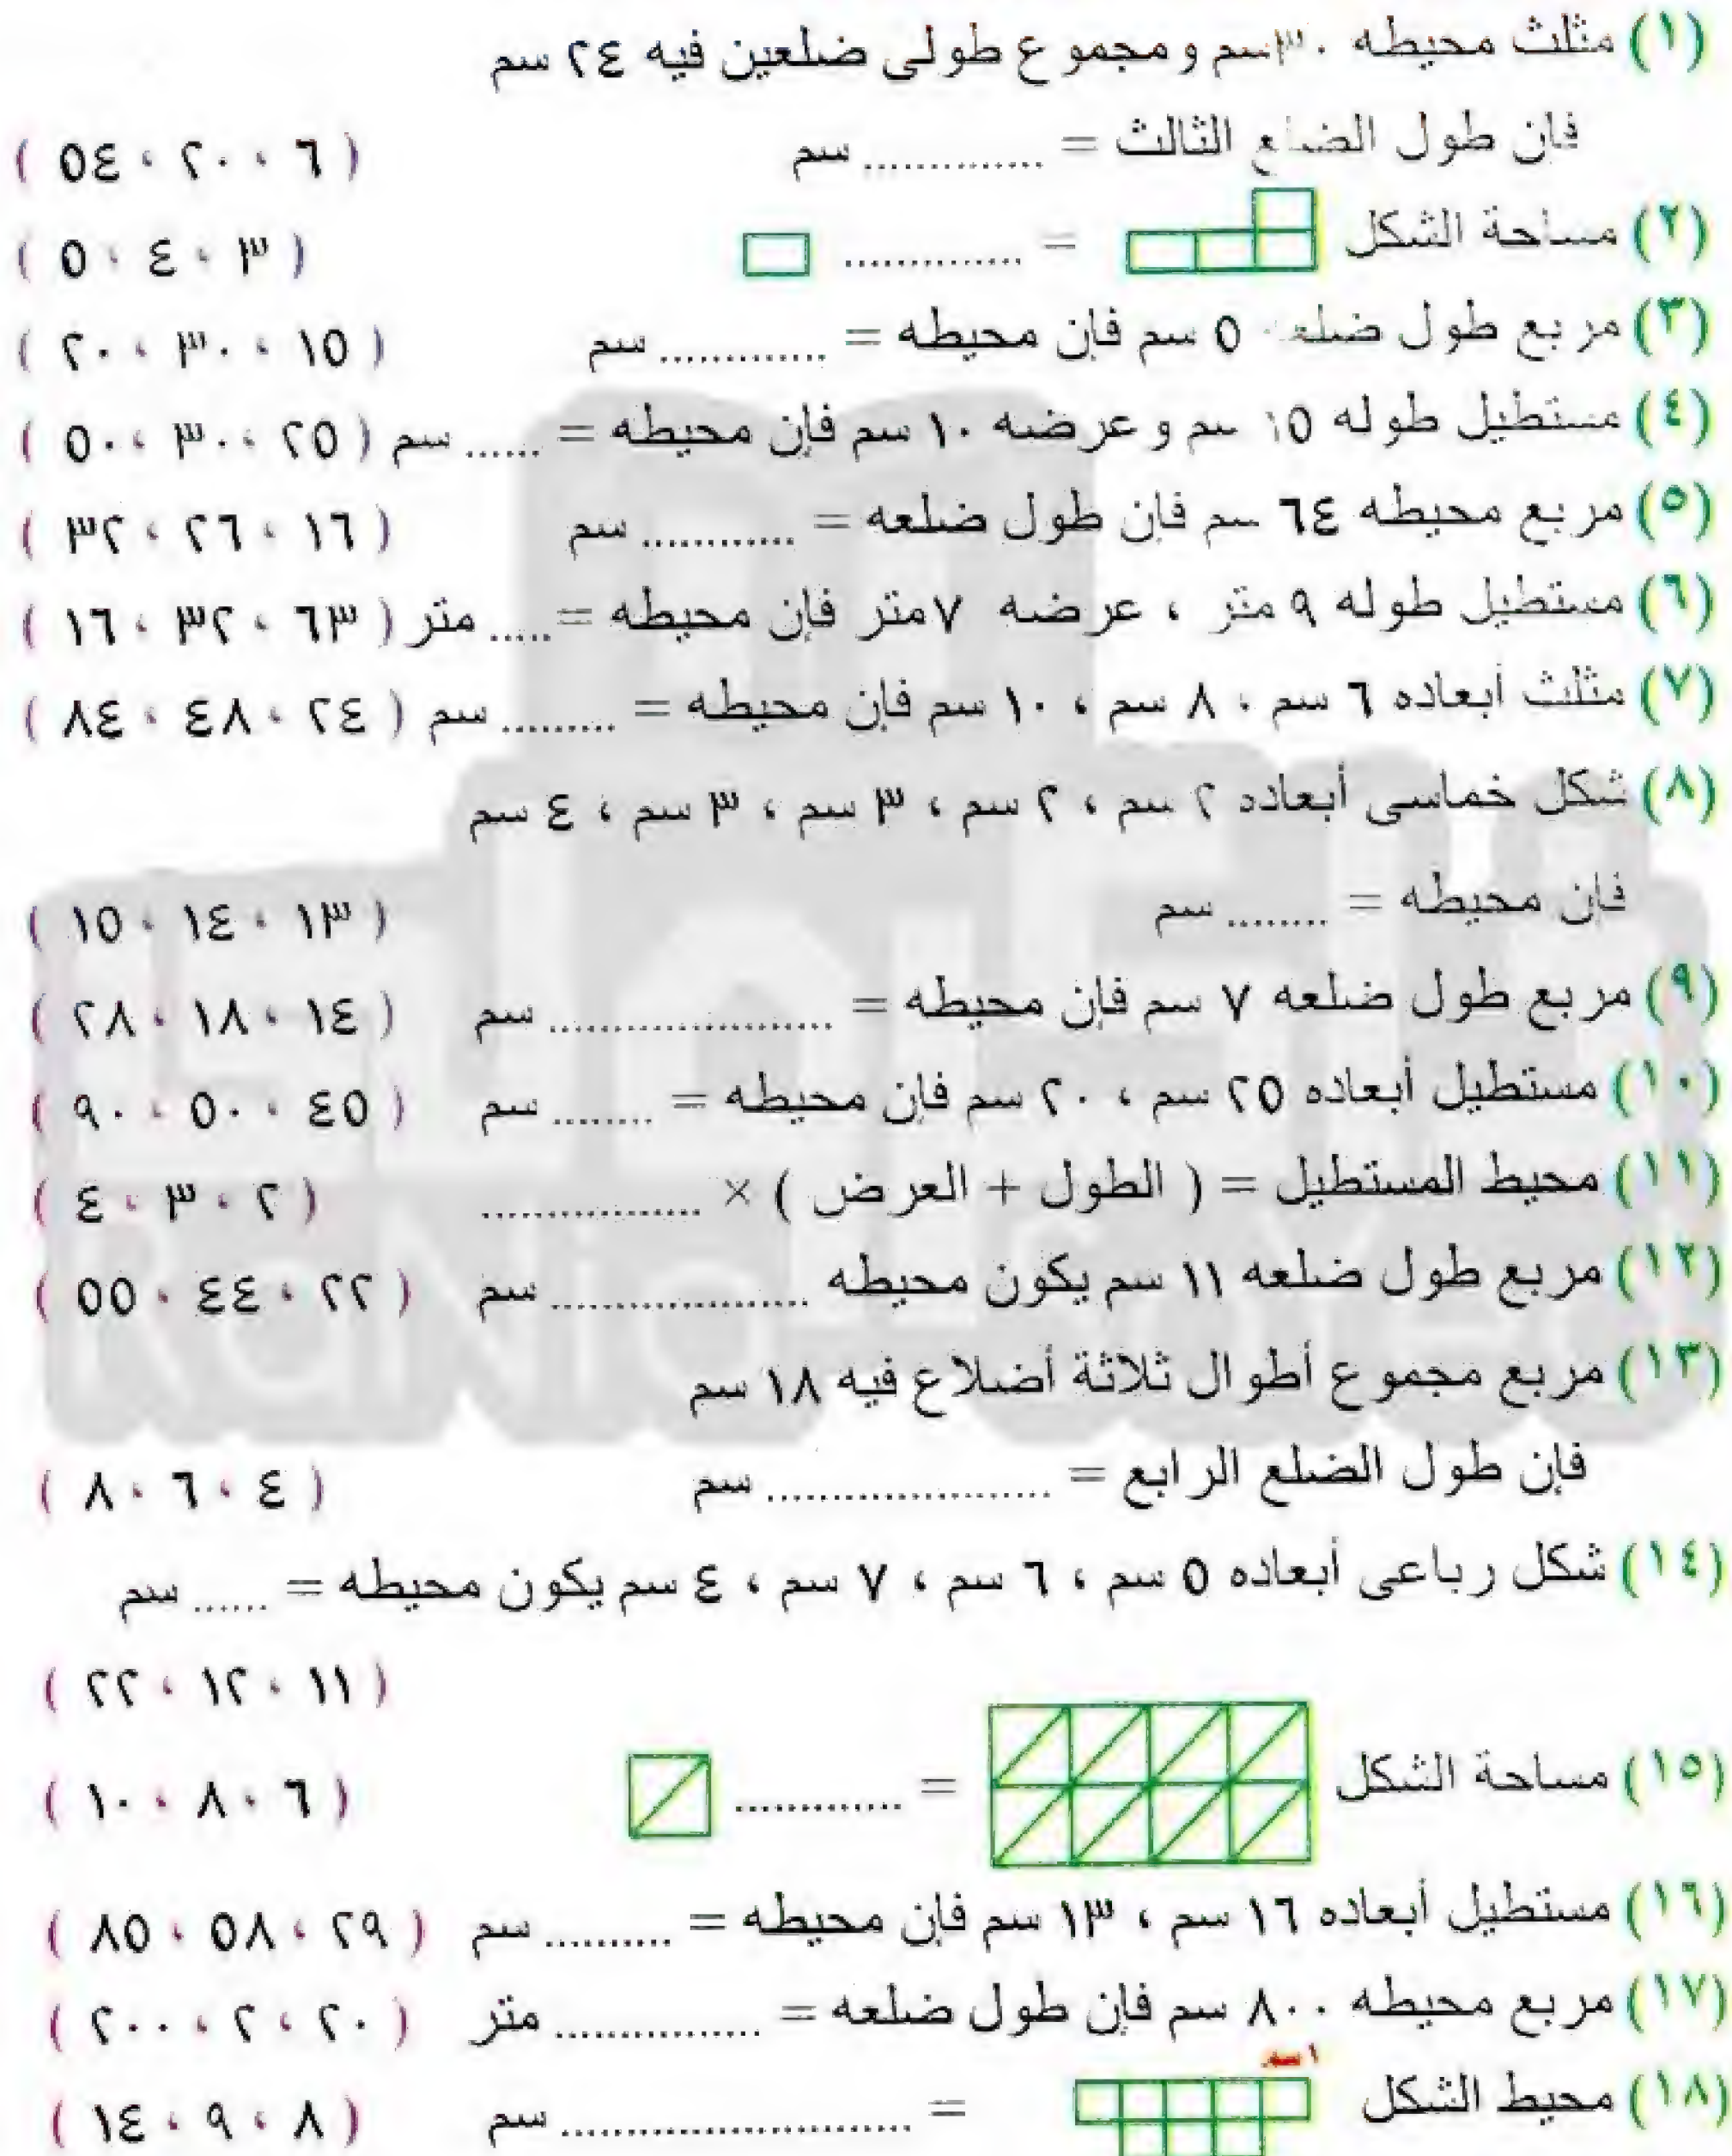 (١) مثلث محيطه ٣٠سم و مجموع طولى ضلعين فيه ٢٤ سم
فإن طول الضلع الثالث = ............. سم ( ٦ ، ٢٠ ، ٥٤ )
(٢) مساحة الشكل = ............. ( ٣ ، ٤ ، ٥ )
(٣) مربع طول ضلعه ٥ سم فإن محيطه = ............. سم ( ١٥ ، ٣٠ ، ٢٠ )
(٤) مستطيل طوله ١٥ سم و عرضه ١٠ سم فإن محيطه = ...... سم ( ٢٥ ، ٣٠ ، ٥٠ )
(٥) مربع محيطه ٦٤ سم فإن طول ضلعه = ............ سم ( ١٦ ، ٢٦ ، ٣٢ )
(٦) مستطيل طوله ٩ متر ، عرضه ٧متر فإن محيطه =..... متر ( ٦٣ ، ٣٢ ، ١٦ )
(٧) مثلث أبعاده ٦ سم ، ٨ سم ، ١٠ سم فإن محيطه = ......... سم ( ٢٤ ، ٤٨ ، ٨٤ )
(٨) شكل خماسى أبعاده ٢ سم ، ٢ سم ، ٣ سم ، ٣ سم ، ٤ سم
فإن محيطه = ........ سم ( ١٣ ، ١٤ ، ١٥ )
(٩) مربع طول ضلعه ٧ سم فإن محيطه = ...................... سم ( ١٤ ، ١٨ ، ٢٨ )
(١٠) مستطيل أبعاده ٢٥ سم ، ٢٠ سم فإن محيطه = ........ سم ( ٤٥ ، ٥٠ ، ٩٠ )
(١١) محيط المستطيل = ( الطول + العرض ) × ................. ( ٢ ، ٣ ، ٤ )
(١٢) مربع طول ضلعه ١١ سم يكون محيطه .................... سم ( ٢٢ ، ٤٤ ، ٥٥ )
(١٣) مربع مجموع أطوال ثلاثة أضلاع فيه ١٨ سم
فإن طول الضلع الرابع = ...................... سم ( ٤ ، ٦ ، ٨ )
(١٤) شكل رباعى أبعاده ٥ سم ، ٦ سم ، ٧ سم ، ٤ سم يكون محيطه = ...... سم
( ١١ ، ١٢ ، ٢٢ )
(١٥) مساحة الشكل = ............. ( ٦ ، ٨ ، ١٠ )
(١٦) مستطيل أبعاده ١٦ سم ، ١٣ سم فإن محيطه = .......... سم ( ٢٩ ، ٥٨ ، ٨٥ )
(١٧) مربع محيطه ٨٠٠ سم فإن طول ضلعه = ................ متر ( ٢٠ ، ٢ ، ٢٠٠ )
١ سم
(١٨) محيط الشكل = ........................... سم ( ٨ ، ٩ ، ١٤ )